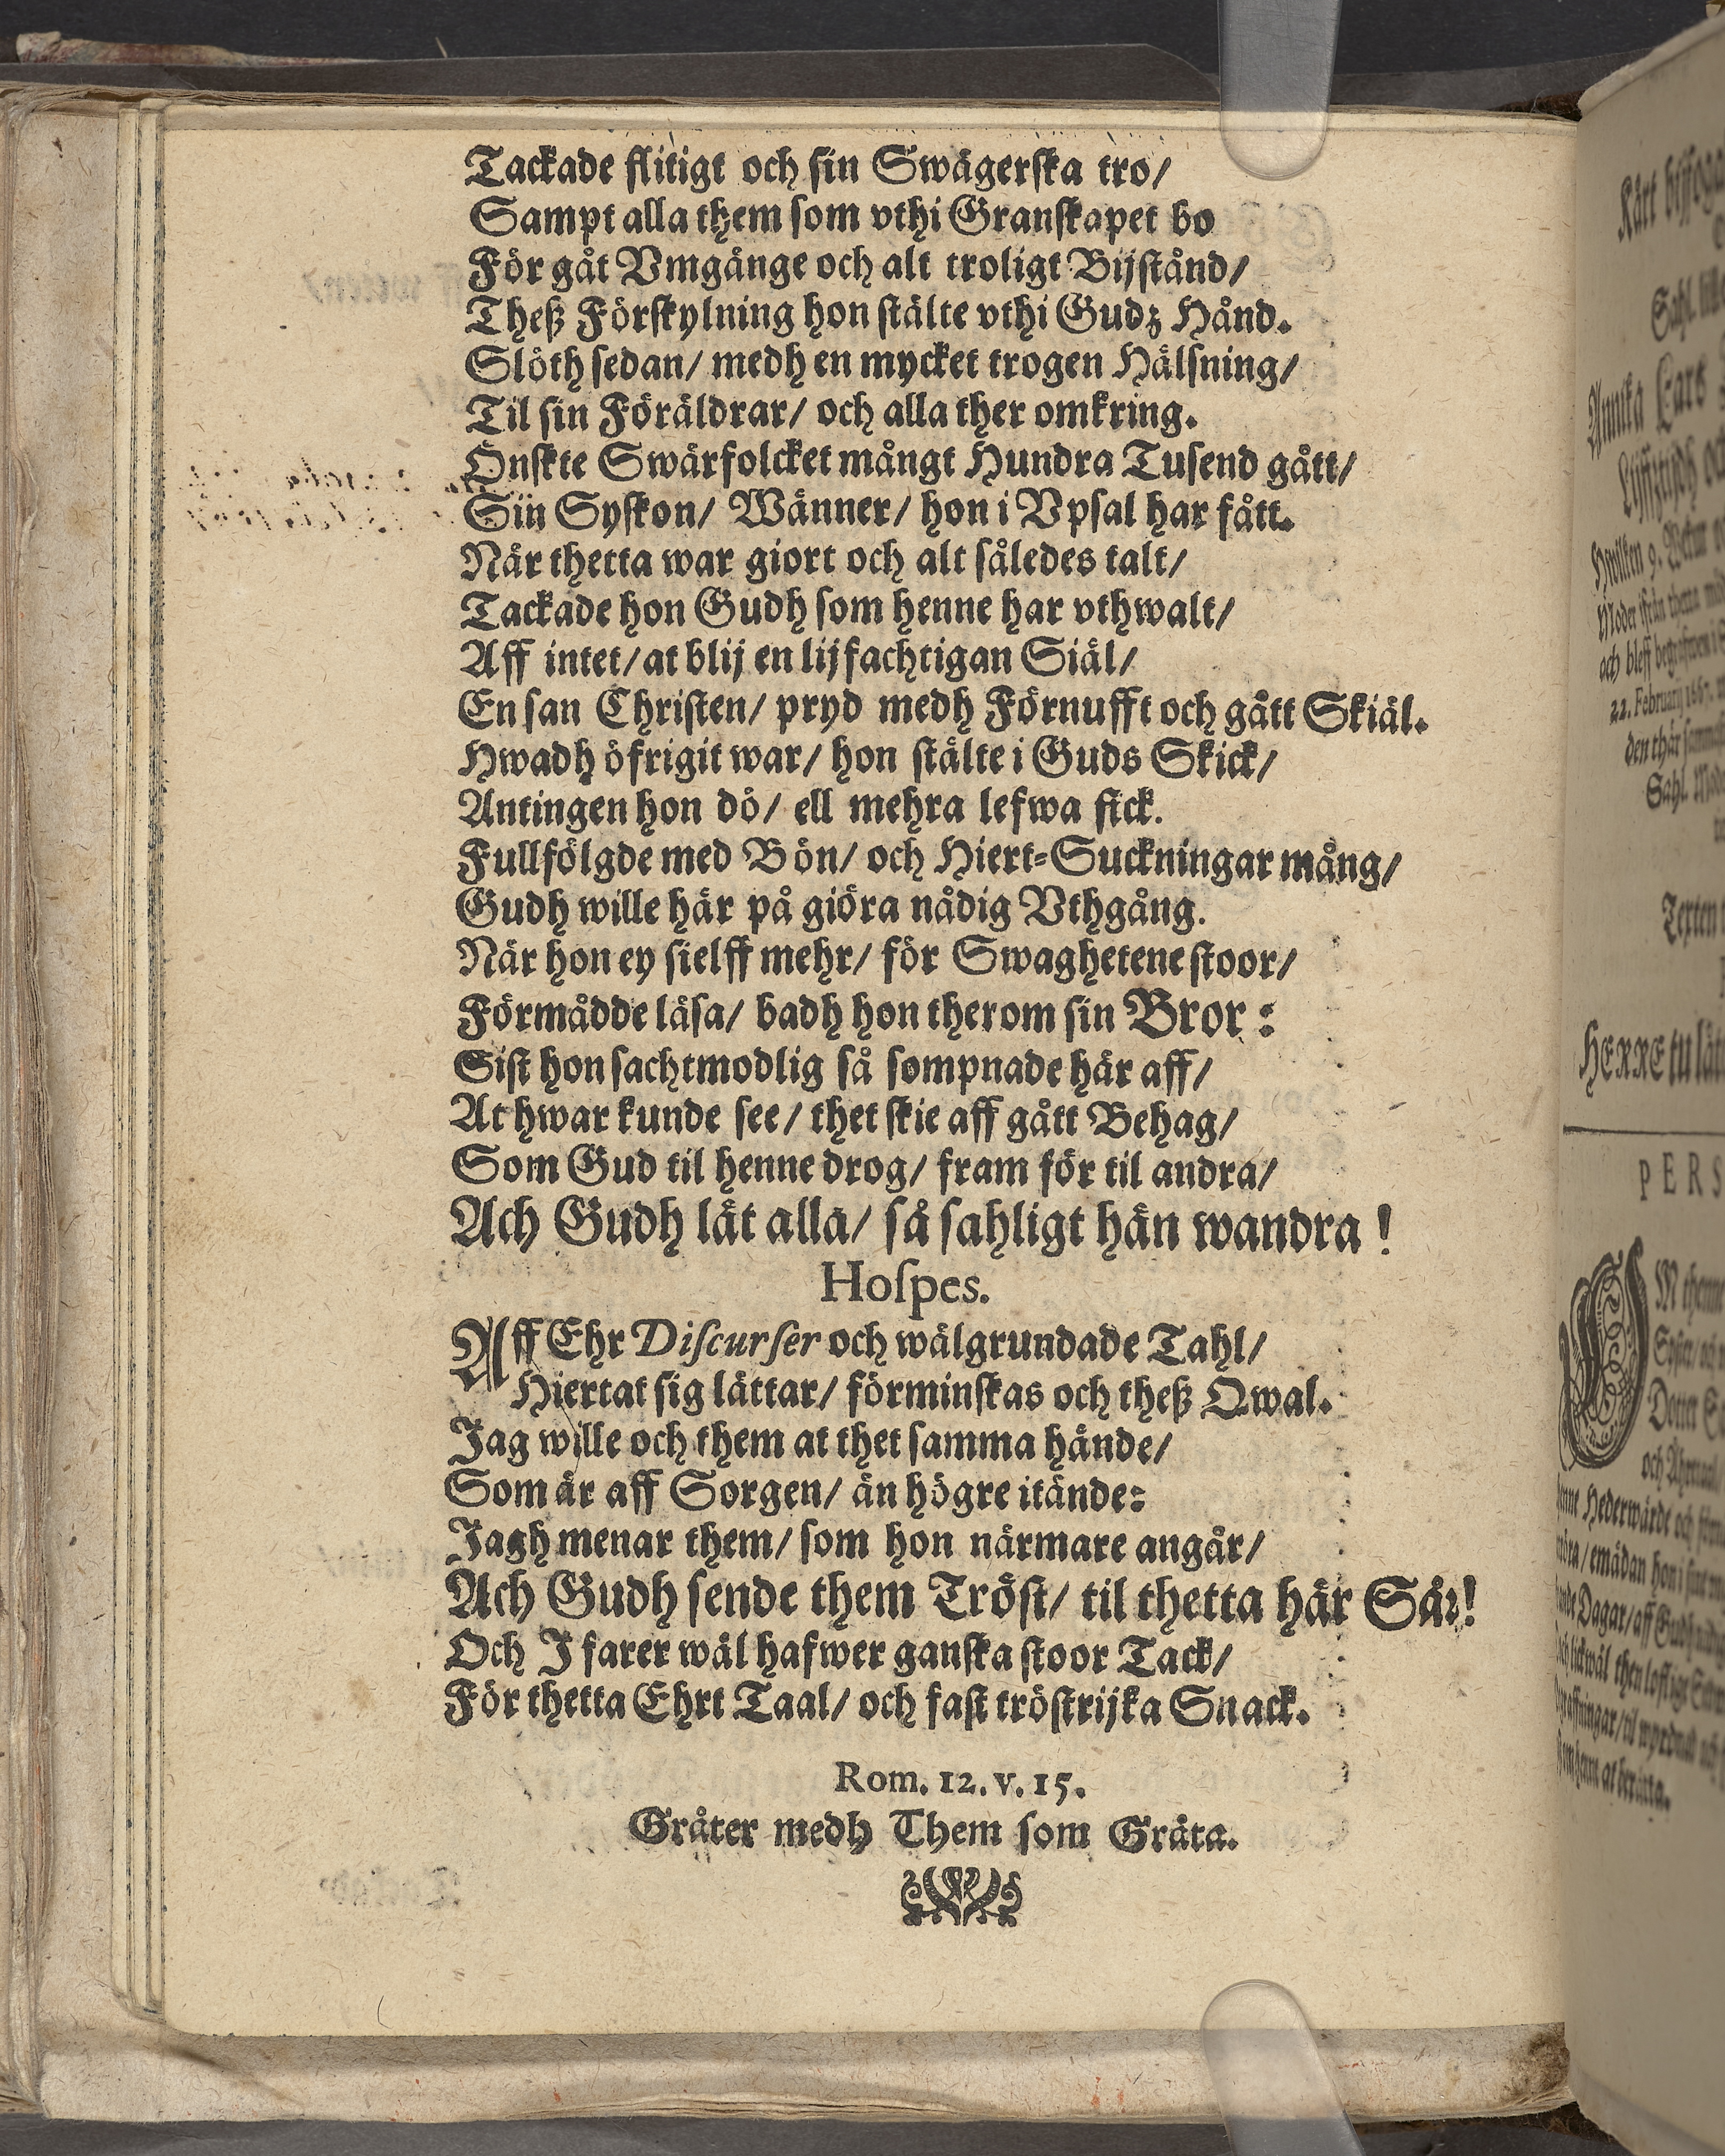 Tackade flitigt och sin Swägerska tro/
Sampt alla them som vthi Granskapet bo
För gåt Vmgänge och alt troligt Bijstånd/
Theß Förskylning hon stälte vthi Gudz Hånd.
Slöth sedan/ medh en mycket trogen Hälsning/
Til sin Föräldrar/ och alla ther omkring.
Önskte Swärfolcket mångt Hundra Tusend gått/
Sin Syskon/ Wänner/ hon i Vpsal har fått.
När thetta war giort och alt således talt/
Tackade hon Gudh som henne har vthwalt/
Aff intet/ at blij en lijfachtigan Siäl/
En san Christen/ pryd medh Förnufft och gått Skiäl.
Hwadh öfrigit war/ hon stälte i Guds Skick/
Antingen hon dö/ ell mehra lefwa fick.
Fullfölgde med Bön/ och Hiert-Suckningar mång/
Gudh wille här på giöra nådig Vthgång.
När hon ey sielff mehr/ för Swaghetene stoor/
Förmådde läsa/ badh hon therom sin Bror:
Sist hon sachtmodlig så sompnade här aff/
At hwar kunde see/ thet skie aff gått Behag/
Som Gud til henne drog/ fram för til andra/
Ach Gudh lät alla/ så sahligt hän wandra!
Hospes.
Aff Ehr Discurser och wälgrundade Tahl/
Hiertat sig lättar/ förminskas och theß Qwal.
Jag wille och them at thet samma hände/
Som är aff Sorgen/ än högre itände:
Jagh menar them/ som hon närmare angår/
Ach Gudh sende them Tröst/ til thetta här Sår!
Och J farer wäl hafwer ganska stoor Tack/
För thetta Ehrt Taal/ och fast tröstrijka Snack.
Rom. 12. v. 15.
Gråter medh Them som Gråta.
Sahl.
Annika Lars
Hwilken 9.
22. February
Sahl.
Texten
HERRE tu
PERS